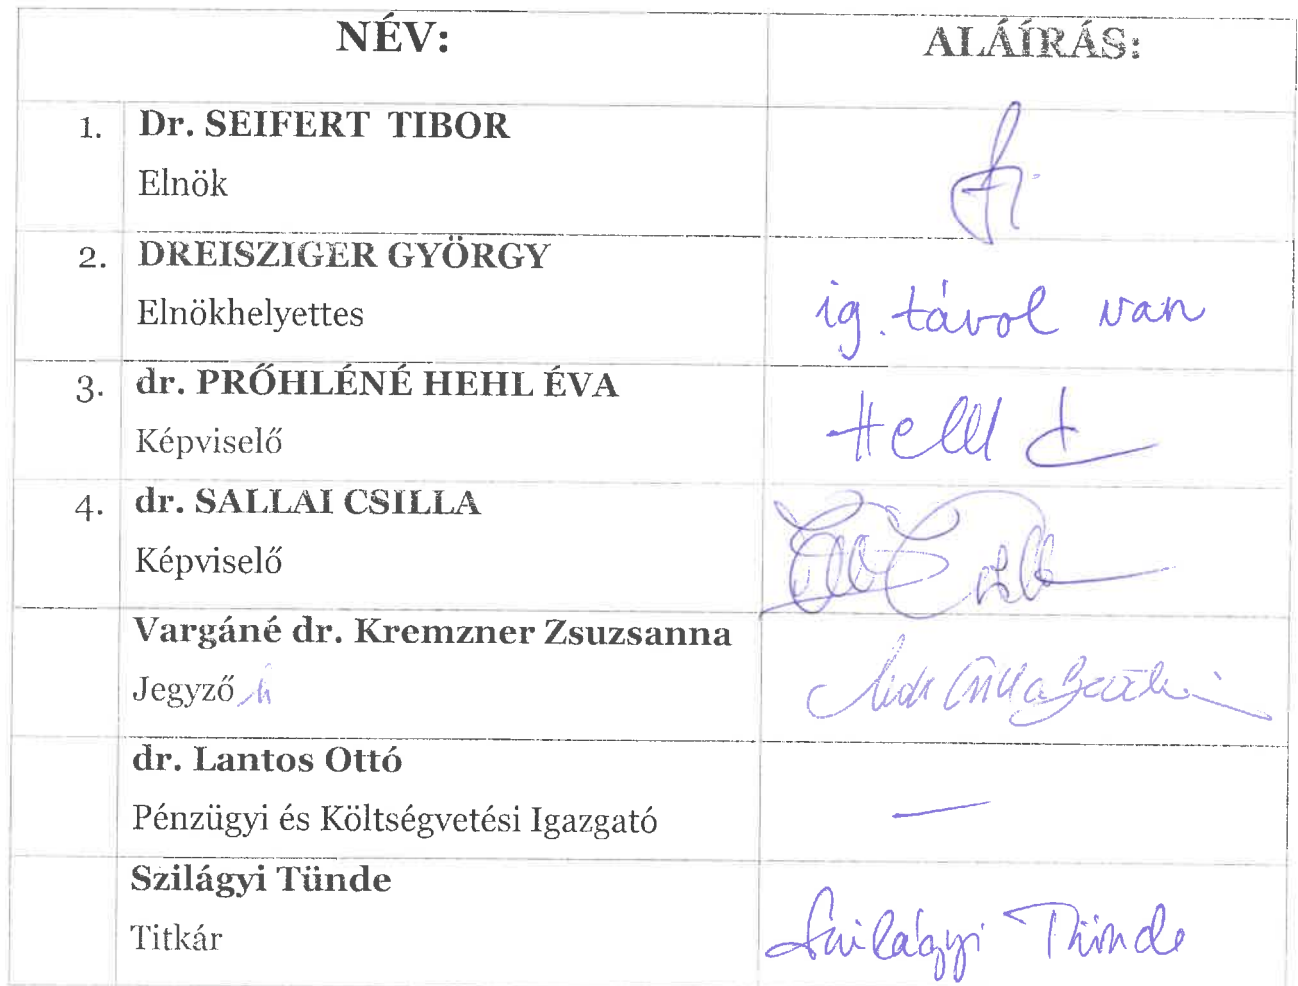 NÉV:
ALÁÍRÁS:
1. Dr. SEIFERT TIBOR
Elnök
2. DREISZIGER GYÖRGY
Elnökhelyettes
ig. távol van
3. dr. PRŐHLÉNÉ HEHL ÉVA
Képviselő
4. dr. SALLAI CSILLA
Képviselő
Vargáné dr. Kremzner Zsuzsanna
Jegyző
dr. Lantos Ottó
Pénzügyi és Költségvetési Igazgató
—
Szilágyi Tünde
Titkár
Szilágyi Tünde